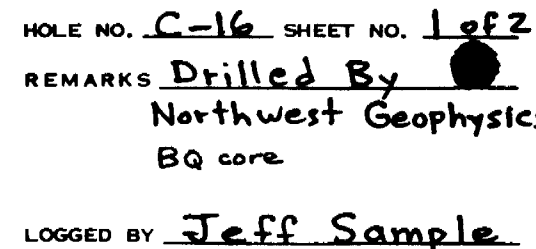 HOLE NO. C-16 SHEET NO. 1 of 2
REMARKS Drilled By
Northwest Geophysics
BQ core
LOGGED BY Jeff Sample